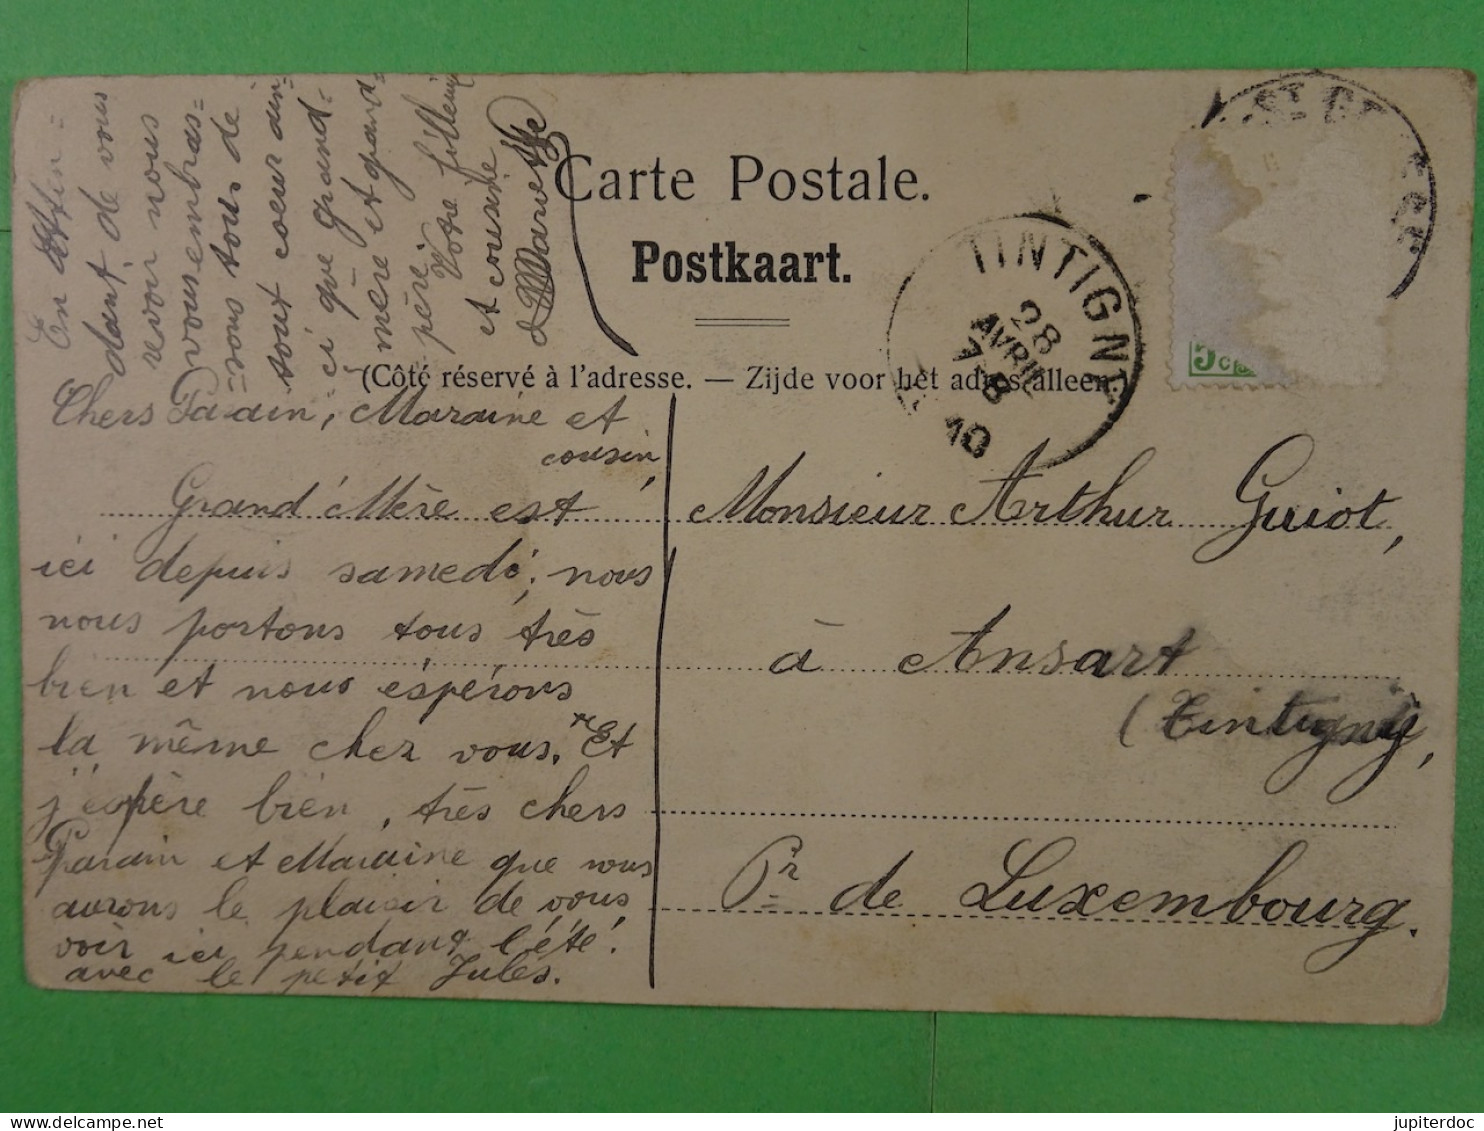 Carte Postale.
Postkaart.
(Côté réservé à l'adresse. — Zijde voor het adres alleen.)
TINTIGNY
28
AVRIL
7-8
10
5 c
Chers Parain, Maraine et
cousin,
Grand'Mère est
ici depuis samedi, nous
nous portons tous très
bien et nous éspérons
la même chez vous. Et
j'espère bien, très chers
Parain et Maraine que nous
aurons le plaisir de vous
voir ici pendant l'été.
avec le petit Jules.
En atten=
dant de vous
revoir nous
vous embras=
=sons tous de
tout coeur ain=
si que grand=
mère et grand=
père
Votre filleul
et cousine
Monsieur Arthur Guiot,
à Ansart
(Tintigny,
Pr de Luxembourg.
jupiterdoc